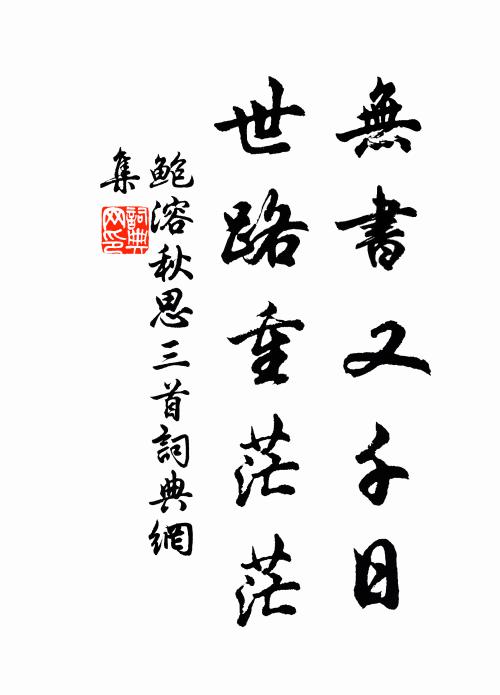 無書又千日
世路重茫茫
鮑溶秋思三首詞典網
集
詞典網印